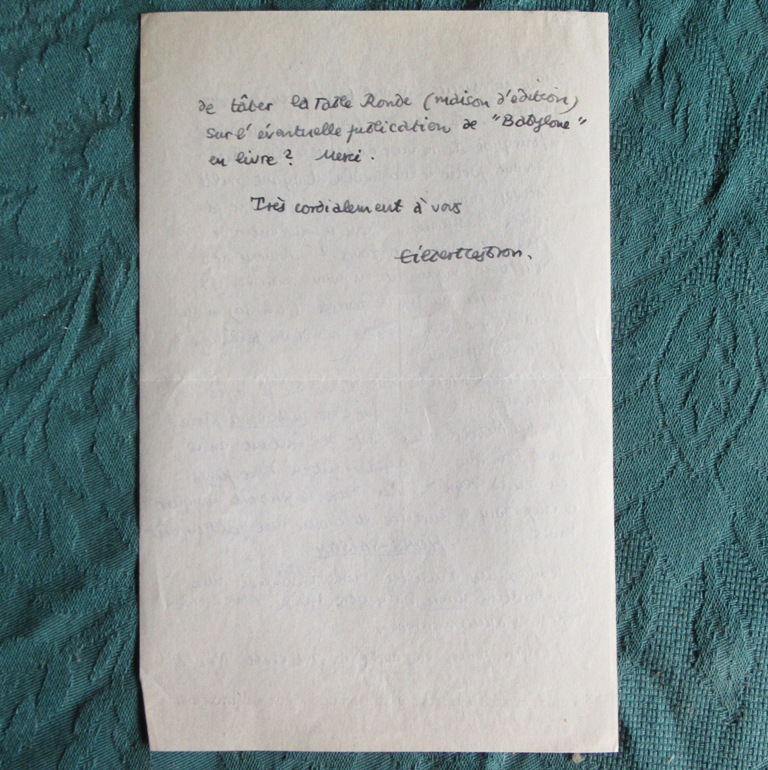 de tâter la Table Ronde (maison d'édition)
sur l'éventuelle publication de "Babylone"
en livre ? Merci.
Très cordialement à vous